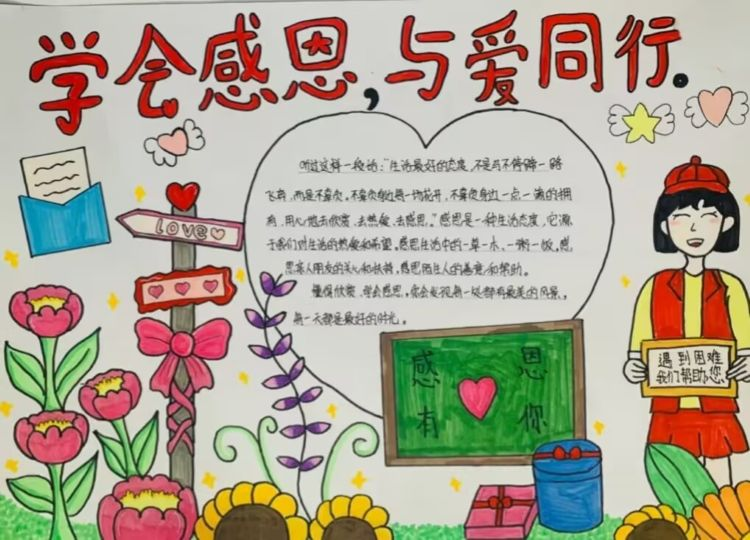 学会感恩,与爱同行。
听过这样一段话:“生活最好的态度,不是马不停蹄一路
飞奔,而是不辜负。不辜负身边每一场花开,不辜负身边一点一滴的拥
有,用心地去欣赏,去热爱,去感恩。”感恩是一种生活态度,它源
于我们对生活的热爱和希望。感恩生活中的一草一木、一粥一饭。感
恩家人朋友的关心和扶持,感恩陌生人的善意和帮助。
懂得欣赏,学会感恩。你会发现每一处都有最美的风景。
每一天都是最好的时光。
LOVE
感 恩
有 你
遇到困难
我们帮助您